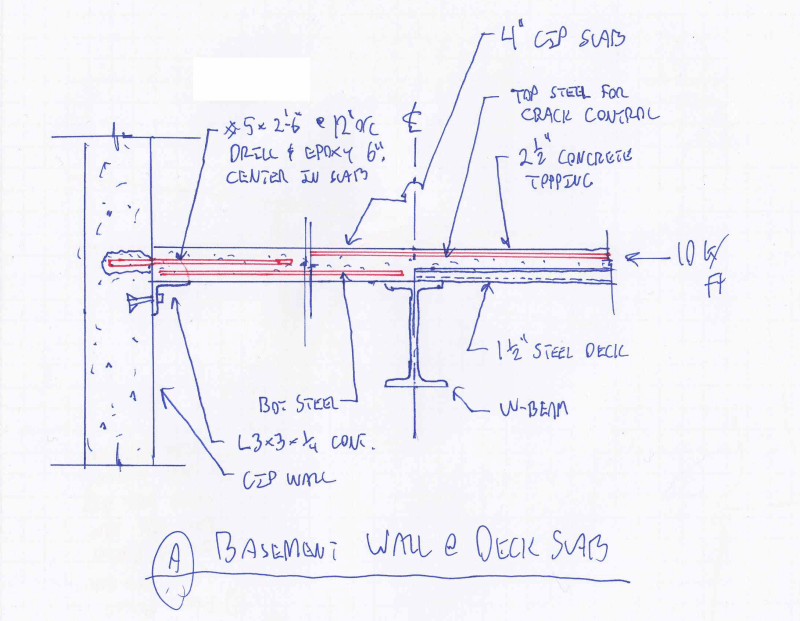 4" CIP SLAB
#5 x 2'-6" @ 12" O/C
DRILL & EPOXY 6".
CENTER IN SLAB
℄
TOP STEEL FOR
CRACK CONTROL
2 1/2" CONCRETE
TOPPING
10 k/
FT
1 1/2" STEEL DECK
BOT STEEL
W-BEAM
L3x3x1/4 CONT.
CIP WALL
A
BASEMENT WALL @ DECK SLAB